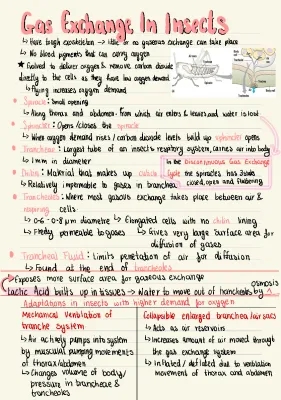 Gas Exchange In Insects
↳ Have tough exoskeleton → little or no gaseous exchange can take place
↳ No blood pigments that can carry oxygen
★ Evolved to deliver oxygen & remove carbon dioxide
directly to the cells as they have low oxygen demand
↳ Flying increases oxygen demand
• Spiracle: Small opening
↳ Along thorax and abdomen. From which air enters & leaves and water is lost
• Sphincter: Opens/closes the spiracle
↳ When oxygen demand rises / carbon dioxide levels build up sphincter opens
• Tracheae: Largest tube of an insect's respitory system, carries air into body
↳ 1mm in diameter
In the Discontinuous Gas Exchange
Cycle the spiracles has 3 states
closed, open and fluttering
• Chitin: Material that makes up cuticle
↳ Relatively impermable to gases in tracheae
• Tracheoles: Where most gaseous exchange takes place between air &
respiring cells
↳ 0.6-0.8 µm diametre ↳ Elongated cells with no chitin lining
↳ Freely permeable to gases ↳ Gives very large surface area for
diffusion of gases
• Tracheal Fluid: limits penetration of air for diffusion
↳ Found at the end of tracheoles
↳ Exposes more surface area for gaseous exchange
Lactic Acid builds up in tissues → Water to move out of tracheoles by osmosis
Adaptations in insects with higher demand for oxygen
Mechanical Ventilation of
tranche System
↳ Air actively pumps into system
by muscular pumping movements
of thorax/abdomen
↳ Changes volume of body/
pressure in tracheae &
tracheoles
Collapsible enlarged trachea/air sacs
↳ Acts as air reservoirs
↳ Increases amount of air moved through
the gas exchange system
↳ Inflated / deflated due to ventilation
movement of thorax and abdomen